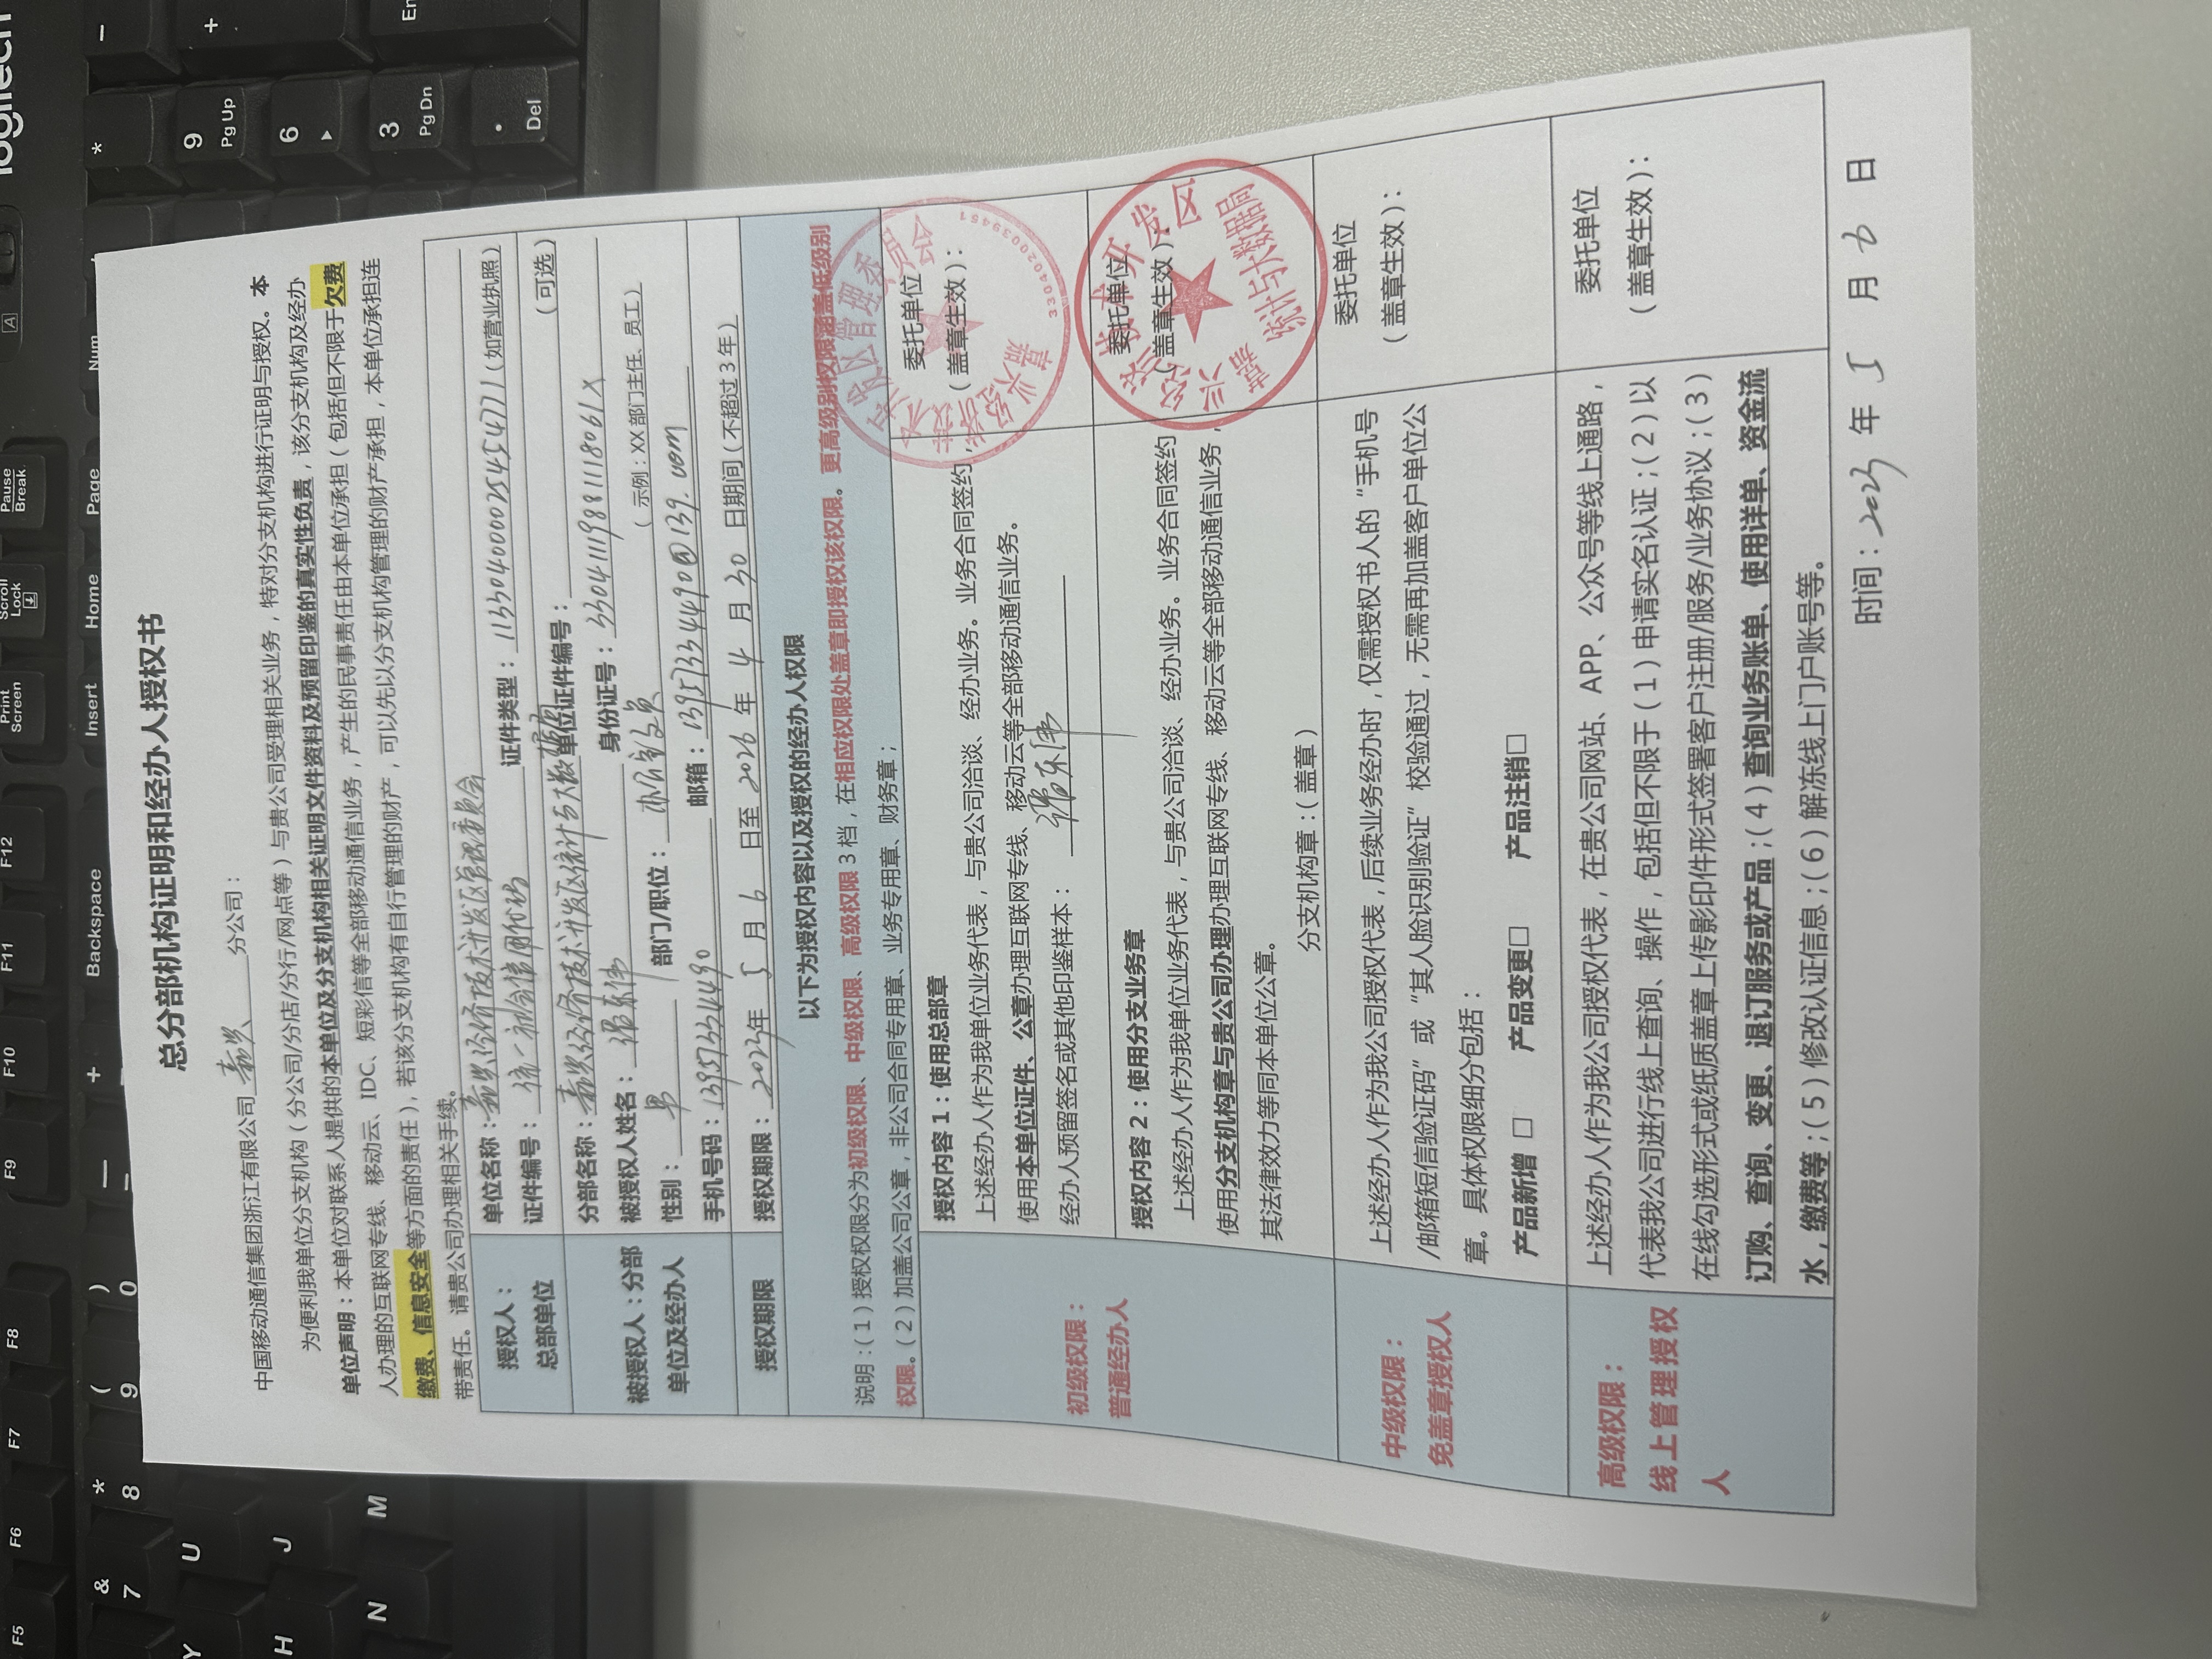 F5 F6 F7 F8 F9 F10 F11 F12 Print Screen Scroll Lock Pause Break logitech
& 7 * 8 ( 9 ) 0 — + Backspace Insert Home Page Num * −
Y U 9 Pg Up +
H J 6
N M 3 Pg Dn En
. Del
总分部机构证明和经办人授权书
中国移动通信集团浙江有限公司嘉兴分公司：
为便利我单位分支机构（分公司/分店/分行/网点等）与贵公司受理相关业务，特对分支机构进行证明与授权。本
单位声明：本单位对联系人提供的本单位及分支机构相关证明文件资料及预留印鉴的真实性负责，该分支机构及经办
人办理的互联网专线、移动云、IDC、短彩信等全部移动通信业务，产生的民事责任由本单位承担（包括但不限于欠费
缴费、信息安全等方面的责任），若该分支机构有自行管理的财产，可以先以分支机构管理的财产承担，本单位承担连
带责任。请贵公司办理相关手续。
授权人：
总部单位
单位名称：嘉兴经济技术开发区管理委员会
证件编号：统一社会信用代码 证件类型：113304000025454771（如营业执照）
被授权人：分部
单位及经办人
分部名称：嘉兴经济技术开发区统计与大数据局 单位证件编号： （可选）
被授权人姓名：东伟 身份证号：33041119881118061X
性别：男 部门/职位：办公室文员 （示例：XX部门主任、员工）
手机号码：13957334490 邮箱：13957334490@139.com
授权期限
授权期限：2023年 5 月 6 日至 2026 年 4 月 30 日期间（不超过3年）
以下为授权内容以及授权的经办人权限
说明：（1）授权权限分为初级权限、中级权限、高级权限3档，在相应权限处盖章即授权该权限。更高级别权限涵盖低级别
权限。（2）加盖公司公章，非公司合同专用章、业务专用章、财务章；
初级权限：
普通经办人
授权内容1：使用总部章
上述经办人作为我单位业务代表，与贵公司洽谈、经办业务。业务合同签约，
使用本单位证件、公章办理互联网专线、移动云等全部移动通信业务。
经办人预留签名或其他印鉴样本：东伟
委托单位
（盖章生效）：
嘉兴经济技术开发区管理委员会
3304020039451
授权内容2：使用分支业务章
上述经办人作为我单位业务代表，与贵公司洽谈、经办业务。业务合同签约
使用分支机构章与贵公司办理办理互联网专线、移动云等全部移动通信业务，
其法律效力等同本单位公章。
分支机构章：（盖章）
委托单位
（盖章生效）：
嘉兴经济技术开发区
统计与大数据局
中级权限：
免盖章授权人
上述经办人作为我公司授权代表，后续业务经办时，仅需授权书人的“手机号
/邮箱短信验证码”或“其人脸识别验证”校验通过，无需再加盖客户单位公
章。具体权限细分包括：
产品新增 □ 产品变更□ 产品注销□
委托单位
（盖章生效）：
高级权限：
线上管理授权
人
上述经办人作为我公司授权代表，在贵公司网站、APP、公众号等线上通路，
代表我公司进行线上查询、操作，包括但不限于（1）申请实名认证；（2）以
在线勾选形式或纸质盖章上传影印件形式签署客户注册/服务/业务协议；（3）
订购、查询、变更、退订服务或产品；（4）查询业务账单、使用详单、资金流
水，缴费等；（5）修改认证信息；（6）解冻线上门户账号等。
委托单位
（盖章生效）：
时间：2023 年 5 月 6 日